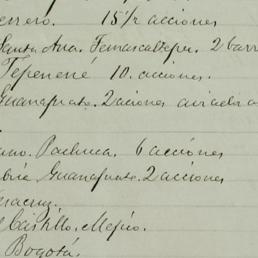 errero. 15 1/2 acciones
Santa Ana. Temascaltepec. 2 barr
Tepenené 10. acciones.
Guanajuato. 2 aciones aviadora
ano. Pachuca. 6 acciónes
bria Guanajuato. 2 acciones
eracruz.
l Castillo. Mejico.
Bogotá.